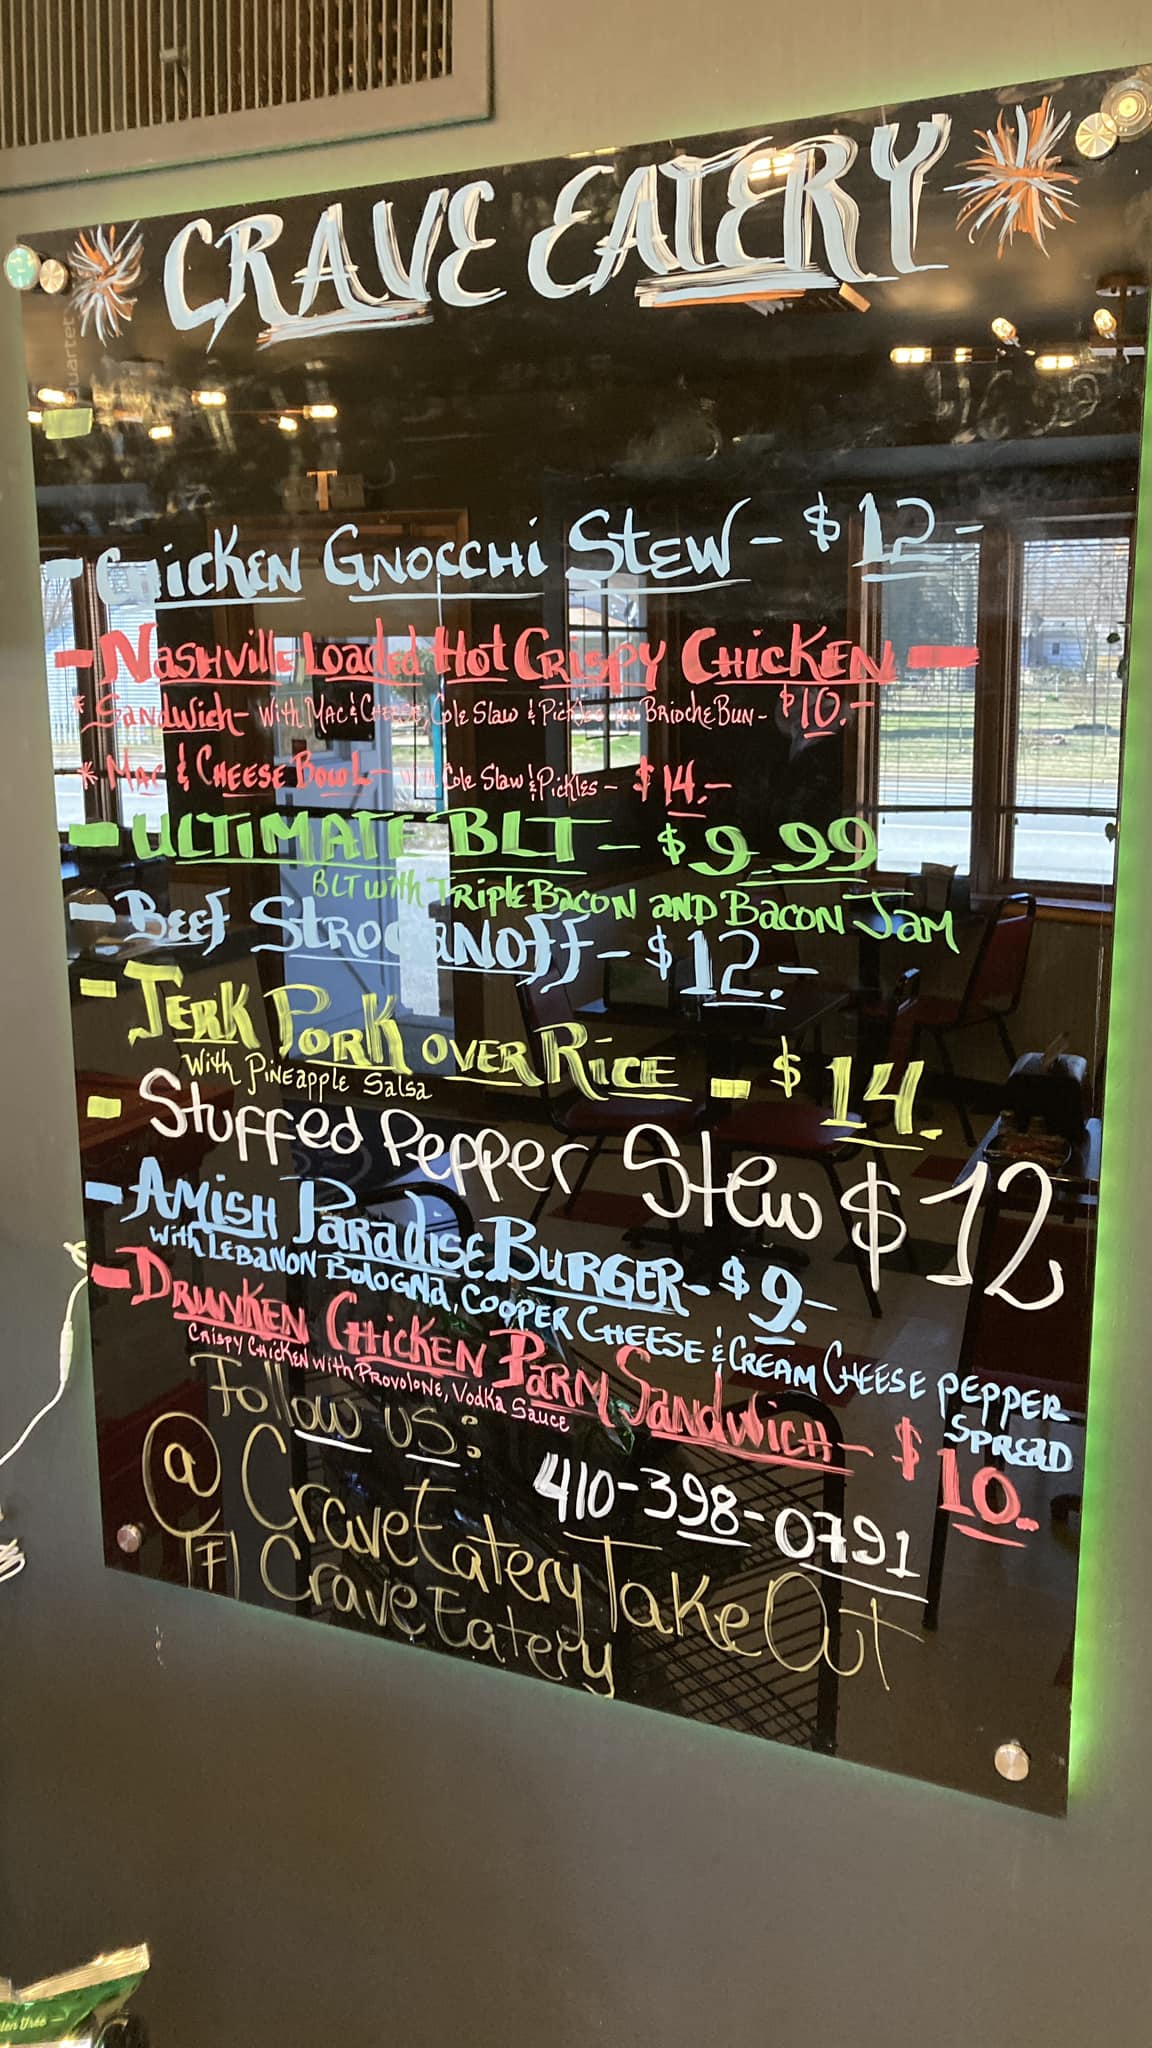 CRAVE EATERY
Quartet
- CHICKEN GNOCCHI STEW - $12-
- NASHVILLE LOADED HOT CRISPY CHICKEN -
* SANDWICH - WITH MAC & CHEESE, COLE SLAW & PICKLES ON BRIOCHE BUN - $10.-
* MAC & CHEESE BOWL - WITH COLE SLAW & PICKLES - $14.-
- ULTIMATE BLT - $9.99
BLT WITH TRIPLE BACON AND BACON JAM
- BEEF STROGANOFF - $12.-
- JERK PORK OVER RICE - $14.
WITH PINEAPPLE SALSA
- Stuffed Pepper Stew $12
- AMISH PARADISE BURGER - $9.-
WITH LEBANON BOLOGNA, COOPER CHEESE & CREAM CHEESE PEPPER
SPREAD
- DRUNKEN CHICKEN PARM SANDWICH - $10.
CRISPY CHICKEN WITH PROVOLONE, VODKA SAUCE
Follow us:
410-398-0791
@ CraveEateryTakeOut
F CraveEatery